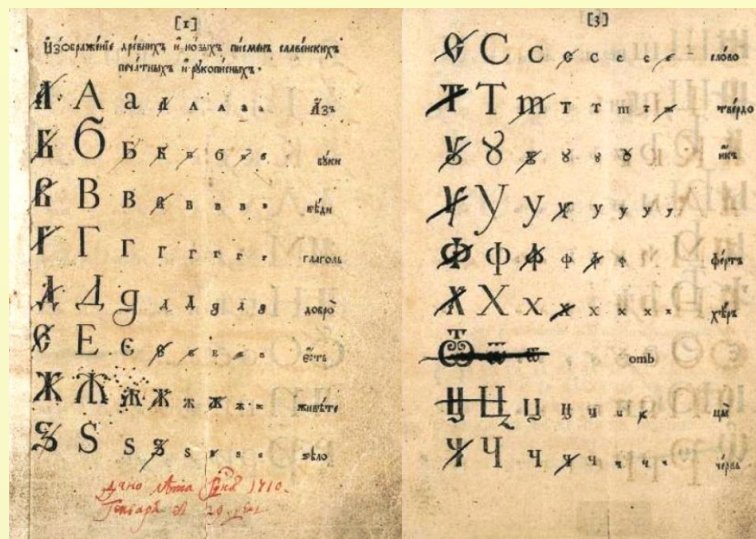 [1]
Изображенїе древнихъ и новыхъ писменъ славенскихъ
печатныхъ и рукописныхъ.
А А а а а а а а Азъ
Б Б Б Б Б б б б буки
В В В В В В В в вѣди
Г Г Г Г Г г г глаголь
Д Д д д д д д добро
Є Е є є є є є есть
Ж Ж ж ж ж ж ж ж живѣте
Ѕ Ѕ Ѕ Ѕ ѕ ѕ ѕ ѕѣло
дано лѣта 1710.
Генваря 29
[3]
Є С С с є с с с є слово
Т Т т т т т т т твердо
Ꙋ Ꙋ Ꙋ Ꙋ Ꙋ Ꙋ икъ
У У у у у у у у
Ф ф ф ф ф ф фертъ
Х Х х х х х х х хѣръ
Ѿ Ѿ ѿ отъ
Ц Ц ц ц ц ц ц цы
Ч Ч ч ч ч ч ч ч червь